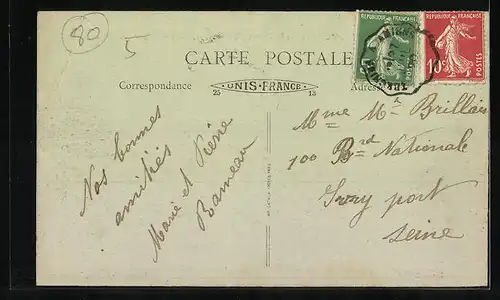 80
5
CARTE POSTALE
REPUBLIQUE FRANÇAISE
REPUBLIQUE FRANÇAISE
10c
POSTES
Correspondance
UNIS-FRANCE
25 13
Nos bonnes
amitiés
Marie et Pierre
Rameau
Mme Mce Brillais
100 Brd Nationale
Ivry port
Seine